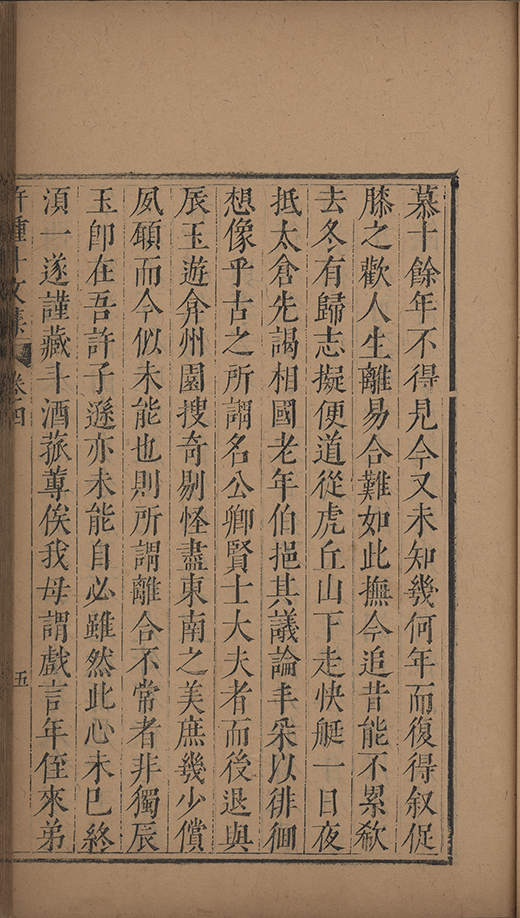 慕十餘年不得見今又未知幾何年而復得叙促
膝之歡人生離易合難如此撫今追昔能不累欷
去冬有歸志擬便道從虎丘山下走快艇一日夜
抵太倉先謁相國老年伯挹其議論丰采以徘徊
想像乎古之所謂名公卿賢士大夫者而後退與
辰玉遊弇州園搜奇剔怪盡東南之美庶幾少償
夙願而今似未能也則所謂離合不常者非獨辰
玉卽在吾許子遜亦未能自必雖然此心未已終
湏一遂謹藏斗酒菰蓴俟我毋謂戲言年侄來弟
許鍾斗文集 卷四 五